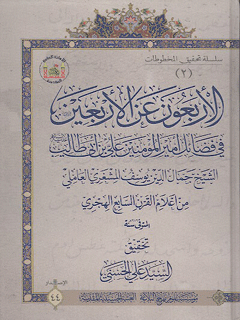 سلسلة تحقيق المخطوطات
(٢)
الأربعون عن الأربعين
في فضائل أمير المؤمنين علي بن أبي طالب
الشيخ جمال الدين يوسف المشغري العاملي
من أعلام القرن السابع الهجري
تحقيق
السيد علي الحسني
٤٤